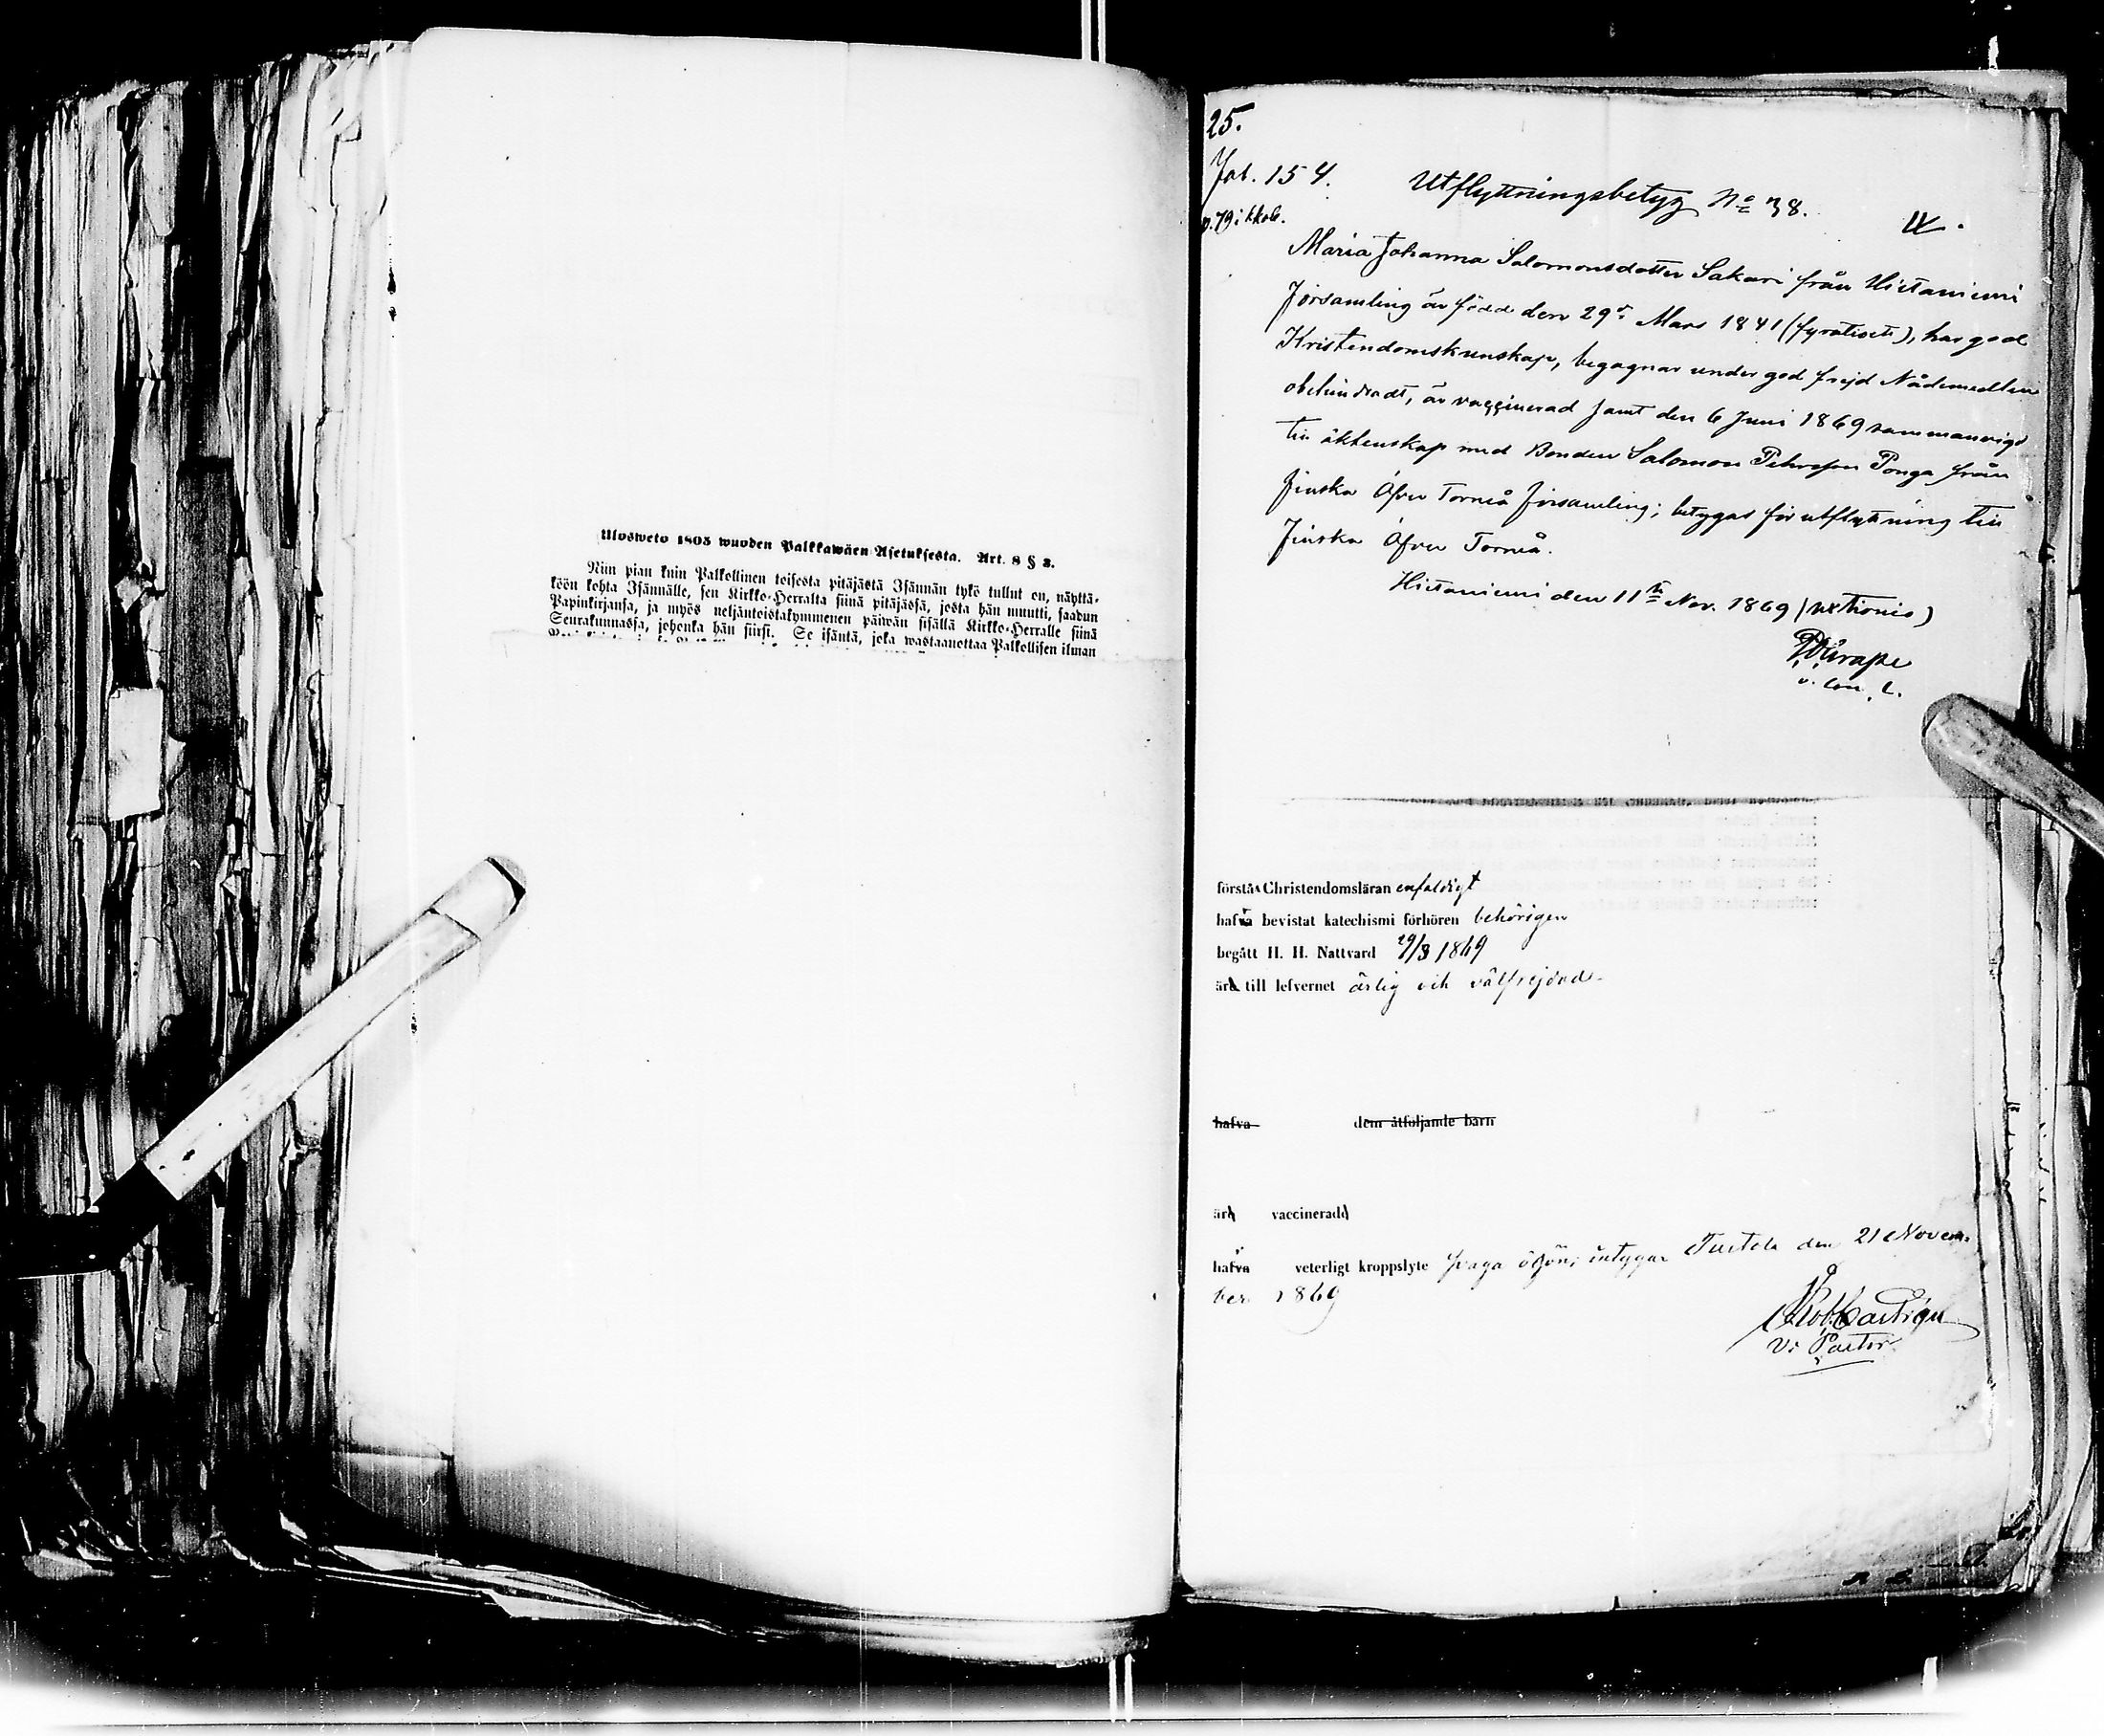 Ulosweto 1805 wuoden Palkkawäen Asetuksesta. Art. 8 § 2.
Niin pian kuin Palkollinen toisesta pitäjästä Isännän tykö tullut on, näyttä-
köön kohta Isännälle, sen Kirkko-Herralta siinä pitäjässä, josta hän muutti, saadun
Papinkirjansa, ja myös neljäntoistakymmenen päiwän sisällä Kirkko-Herralle siinä
Seurakunnassa, johonka hän siirsi. Se isäntä, joka wastaanottaa Palkollisen ilman
25.
Jat. 154.
p. 79 i kkob.
Utflyttningsbetyg No 38.
IX.
Maria Johanna Salomonsdotter Sakari från Hietaniemi
församling är född den 29de Mars 1841 (fyratioett), har god
Kristendomskunskap, begagnar under god frejd Nådemedlen
obehindradt, är vaccinerad samt den 6 Juni 1869 sammanvigd
till äktenskap med Bonden Salomon Pehrsson Ponga från
finska Öfver Torneå församling; betygas för utflyttning till
finska Öfver Torneå.
Hietaniemi den 11te Nov. 1869
v. com. l.
förstås Christendomsläran enfaldigt
hafva bevistat katechismi förhören behörigen
begått H. H. Nattvard 29/8 1869
äro till lefvernet ärlig och välfrejdad
hafva dem åtföljande barn
äro vaccinerade
hafva veterligt kroppslyte svaga ögon; intygar Turtola den 21 Novem-
ber 1869
Rob. Castrén
V. Pastor